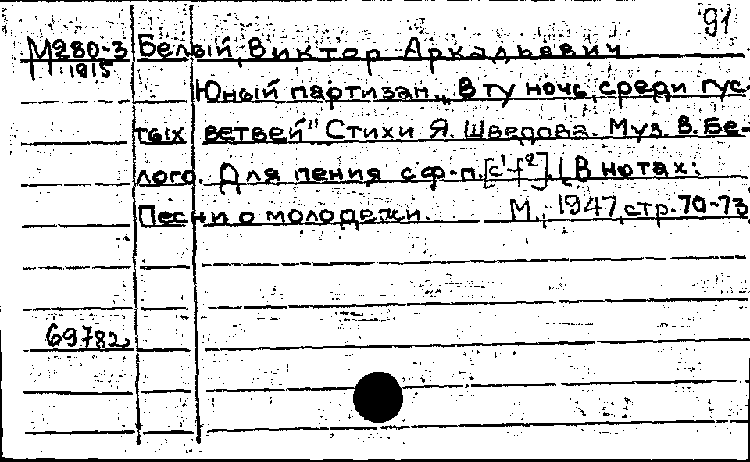 91
М280-3 Белый, Виктор Аркадьевич
1915
Юный партизан. „В ту ночь среди гус-
тых ветвей" Стихи Я. Шведова. Муз. В. Бе-
лого. Для пения с ф-п. [c¹-f²]. (В нотах:
Песни о молодежи. М., 1947, стр. 70-73
69782